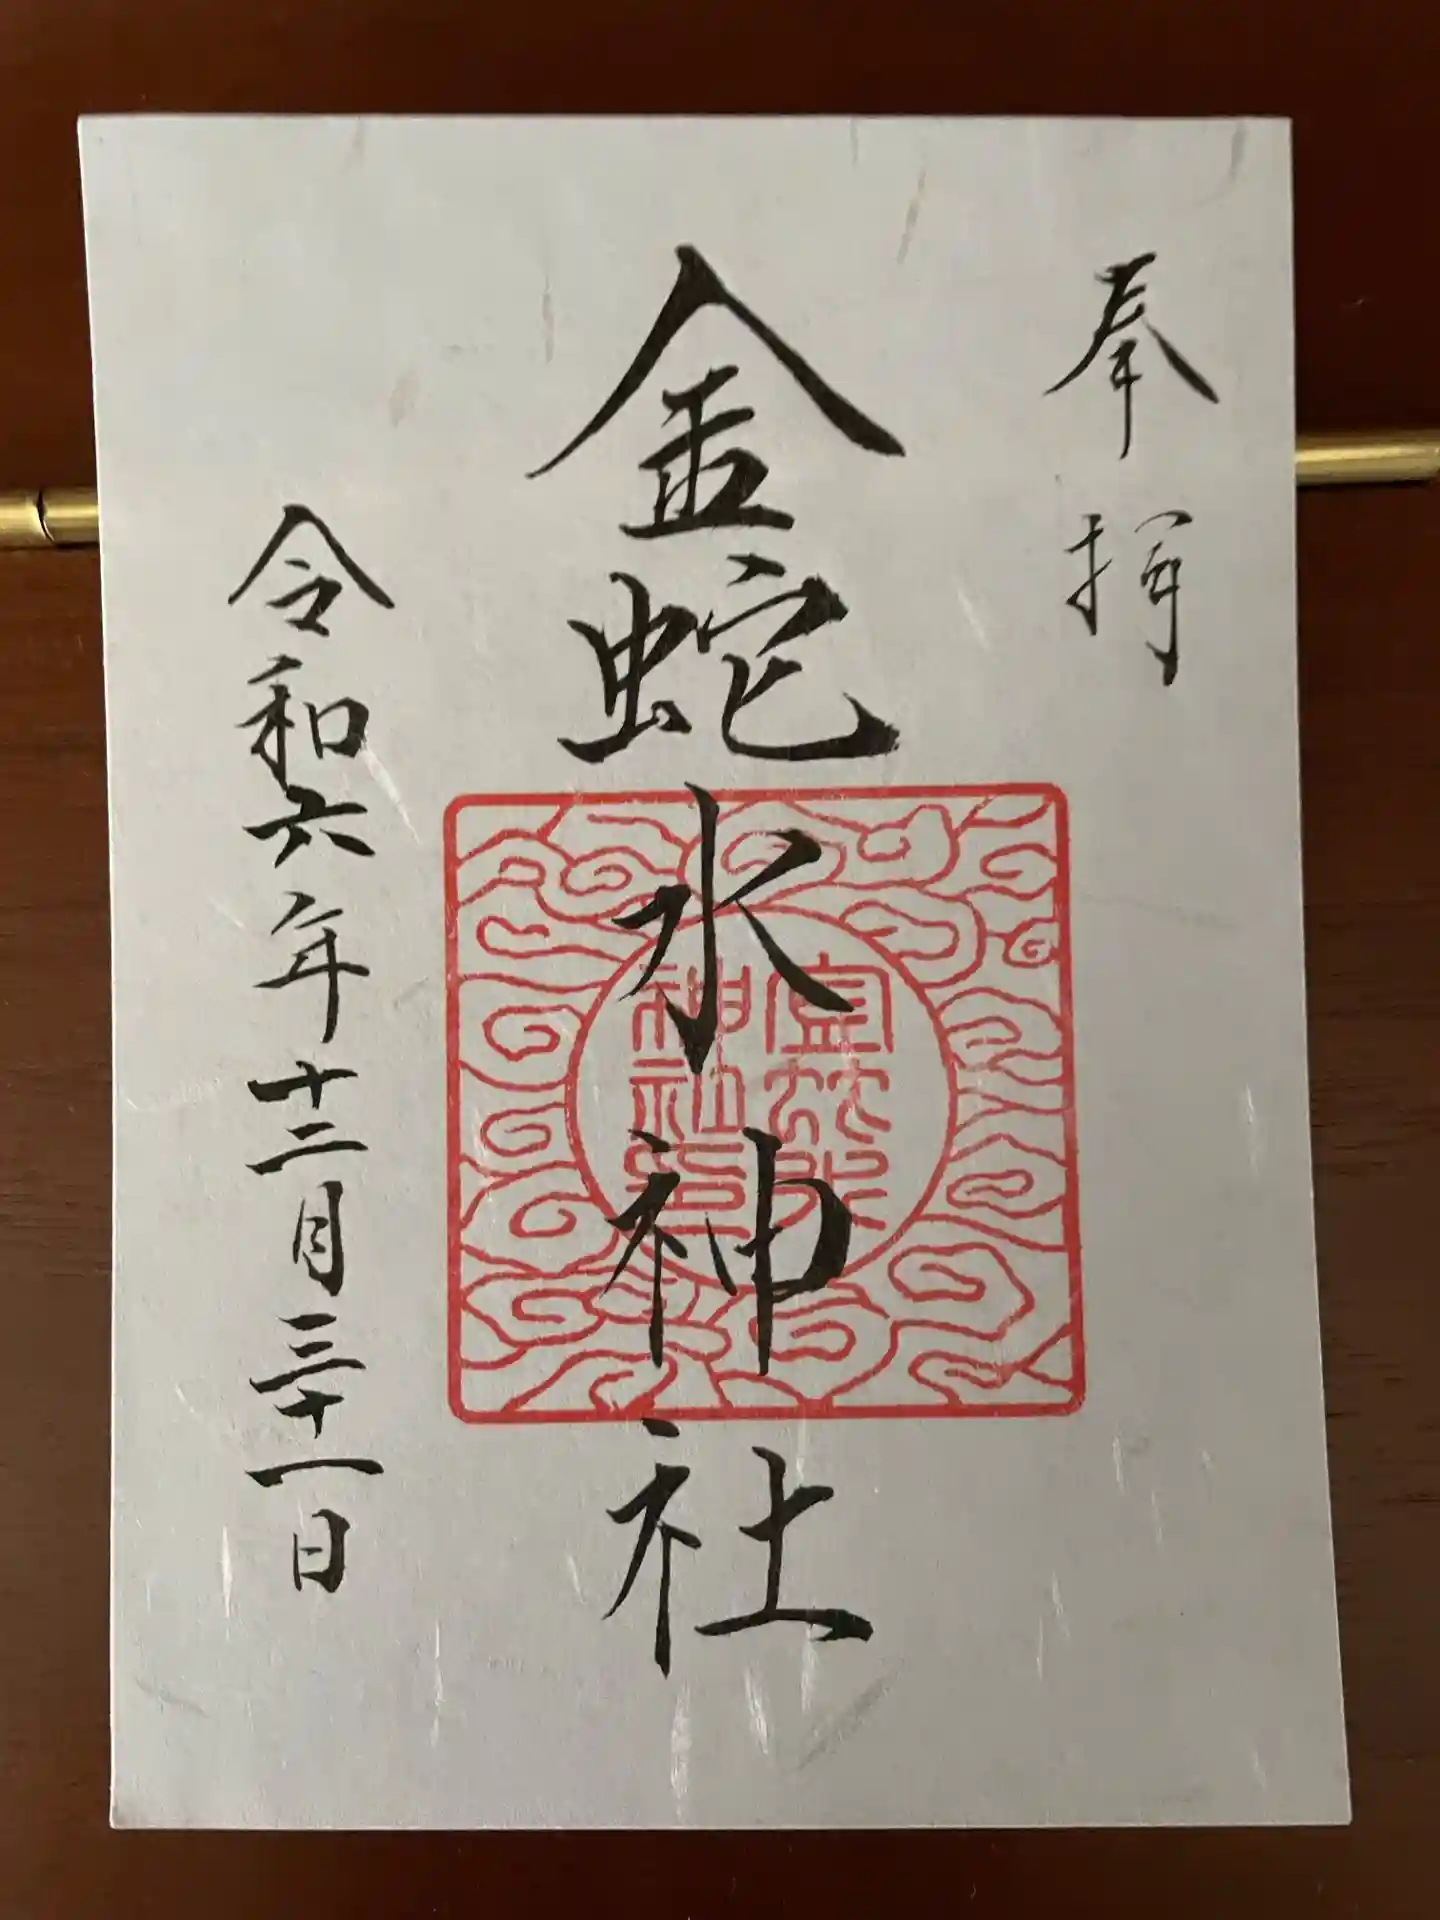 奉拝
金蛇水神社
神社印
令和六年十二月三十一日